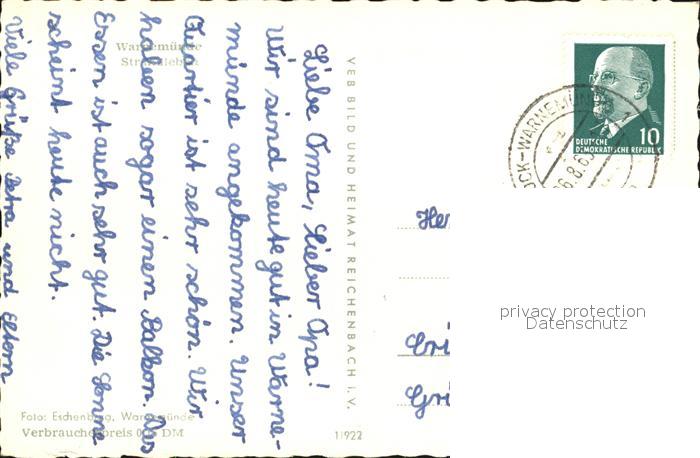 Warnemünde
Strandleben
Liebe Oma, Lieber Opa!
Wir sind heute gut in Warne-
münde angekommen. Unser
Quartier ist sehr schön. Wir
haben sogar einen Balkon. Das
Essen ist auch sehr gut. Die Sonne
scheint heute nicht.
Viele Grüße Petra und Eltern
VEB BILD UND HEIMAT REICHENBACH I. V.
Foto: Eschenburg, Warnemünde
Verbraucherpreis DM
1 1922
10
DEUTSCHE
DEMOKRATISCHE REPUBLIK
OCK-WARNEMÜN
6.8.6
Her
Gri
Grü
privacy protection
Datenschutz